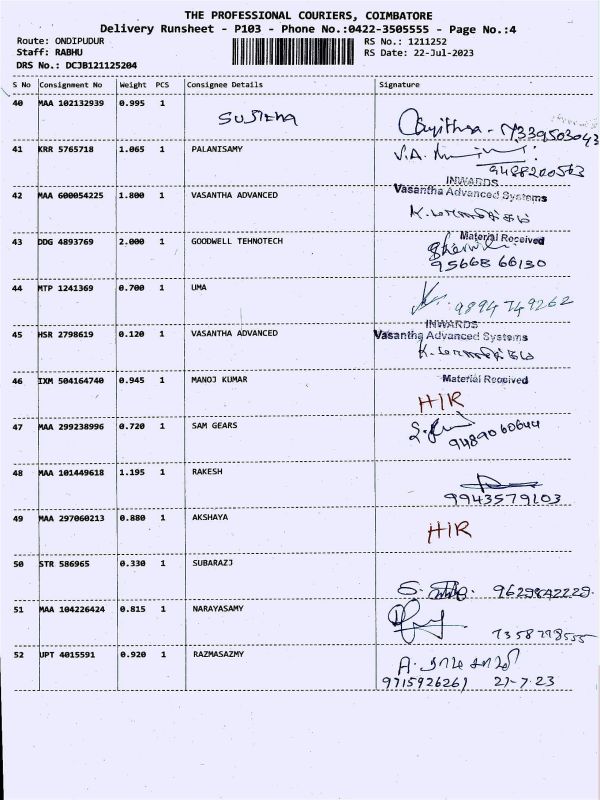 THE PROFESSIONAL COURIERS, COIMBATORE
Delivery Runsheet - P103 - Phone No.:0422-3505555 - Page No.:4
Route: ONDIPUDUR RS No.: 1211252
Staff: RABHU RS Date: 22-Jul-2023
DRS No.: DCJB121125204
S No Consignment No Weight PCS Consignee Details Signature
40 MAA 102132939 0.995 1 SUJITHA Sujithra - 7339503043
41 KRR 5765718 1.065 1 PALANISAMY V.A.
9488200563
INWARDS
42 MAA 600054225 1.800 1 VASANTHA ADVANCED Vasantha Advanced Systems
Material Received
43 DDG 4893769 2.000 1 GOODWELL TEHNOTECH
95668 66130
44 MTP 1241369 0.700 1 UMA
9894749262
INWARDS
45 HSR 2798619 0.120 1 VASANTHA ADVANCED Vasantha Advanced Systems
46 IXM 504164740 0.945 1 MANOJ KUMAR Material Received
HIR
47 MAA 299238996 0.720 1 SAM GEARS
9489060644
48 MAA 101449618 1.195 1 RAKESH
9943579103
49 MAA 297060213 0.880 1 AKSHAYA HIR
50 STR 586965 0.330 1 SUBARAZJ
9629842229.
51 MAA 104226424 0.815 1 NARAYASAMY
7358778555
52 UPT 4015591 0.920 1 RAZMASAZMY A.
9715926261 21-7-23